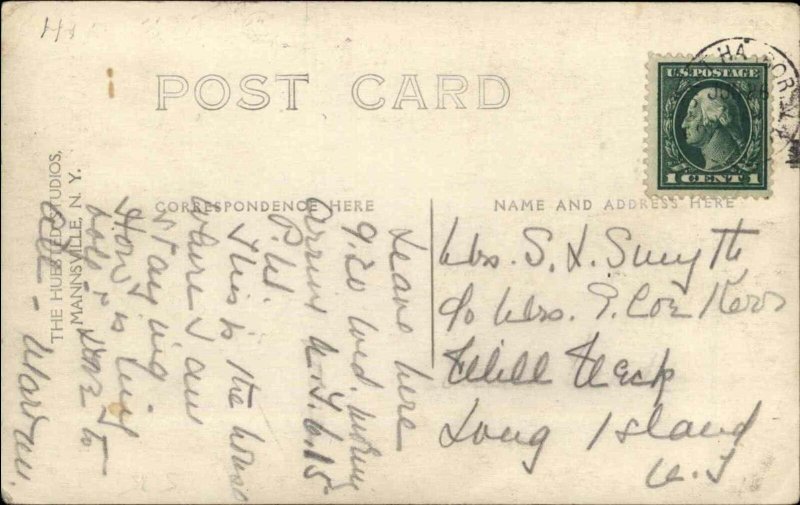 POST CARD
THE HUESTED STUDIOS,
MANNSVILLE, N. Y.
CORRESPONDENCE HERE
NAME AND ADDRESS HERE
U.S. POSTAGE
1 CENT 1
HARBOR
Leave here
9.20 Wed. morning
Arrive N.Y. 6.15
P.M.
This is the house
where I am
staying
How is
Love to
all - Warren.
Mrs. S. L. Smyth
c/o Mrs. E. Coe Kerr
Mill Neck
Long Island
N.Y.